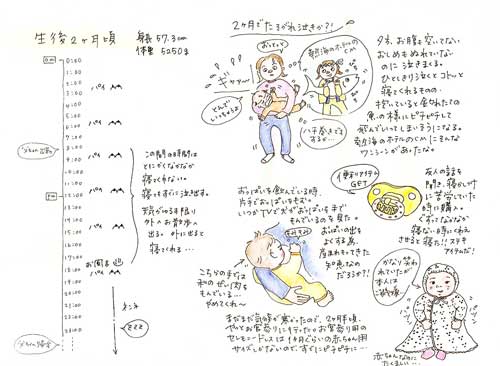 生後2ヶ月頃
身長 57.3cm
体重 5250g
0:00
1:00
2:00
パイ
3:00
4:00
5:00
パイ
6:00
7:00
8:00
パイ
9:00
10:00
11:00
パイ
12:00
13:00
14:00
パイ
15:00
16:00
17:00
18:00
お風呂
パイ
19:00
20:00
21:00
22:00
23:00
ネンネ
この間の時間は
とにかくなかなか
寝てくれない。
寝てもすぐに泣き出す。
天気がゆるす限り
外へお散歩へ
出る。外に出ると
寝てくれる…
2ヶ月でたそがれ泣きか?!
おっとっと
ギャァ〜
とんで
いっちゃうよ
熱海のホテルのCM
ハチ巻きまで
するか…
夕方、お腹も空いてない
おしめもぬれていない
のに泣きまくる。
ひとしきり泣くとコトッと
寝てくれるものの
抱いていると産卵したての
魚の様にピチピチして
飛んでいってしまいそうになる。
熱海のホテルのCMにそんな
ワンシーンがあったなぁ。
おっぱいを飲んでいる時、
片手でおっぱいをもむ。
いつかTVで犬がおっぱいを手で
もんでいるのを見た。
モミモミ
おっぱいの出を
よくする為、
産まれもってきた
知恵なの
だろうか?!
こちらの王子は
私のぜい肉を
もんでいる…
やめてくれ〜
便利アイテム
GET
友人の話を
聞き、寝かし付け
に苦労していた
時に購入。
ぐずってなかなか
寝ない時にくわえ
させると寝た!!ステキ
アイテムだ!
まだまだ気候が寒かったので、2ヶ月半頃、
やっとお宮参りに行ったのがお宮参り用の
セレモニードレスは1ヶ月ぐらいの赤ちゃん用
サイズしかないので、すでにピチピチに…
かなり笑わ
れていたが
本人は
赤ちゃんなのに
たくましい…